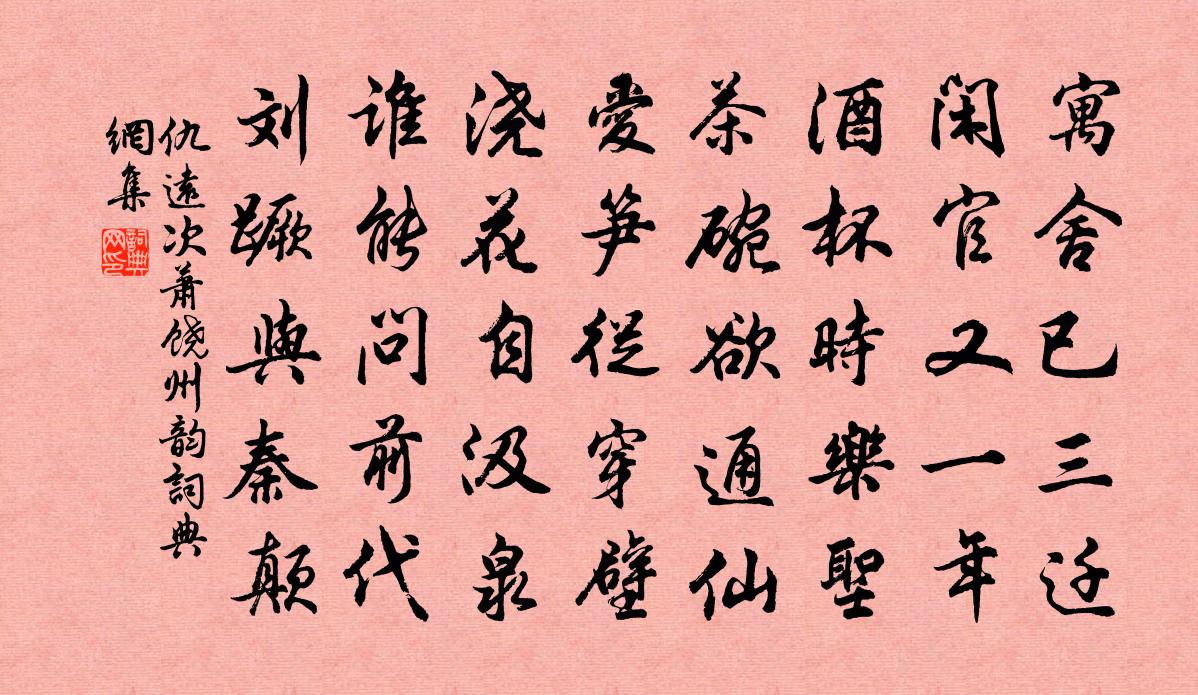 寓舍已三迁
闲官又一年
酒杯時樂聖
茶碗欲通仙
愛笋從穿壁
浇花自汲泉
谁能问前代
刘蹶與秦颠
仇遠次萧饶州韵詞典
網集
詞典
网印